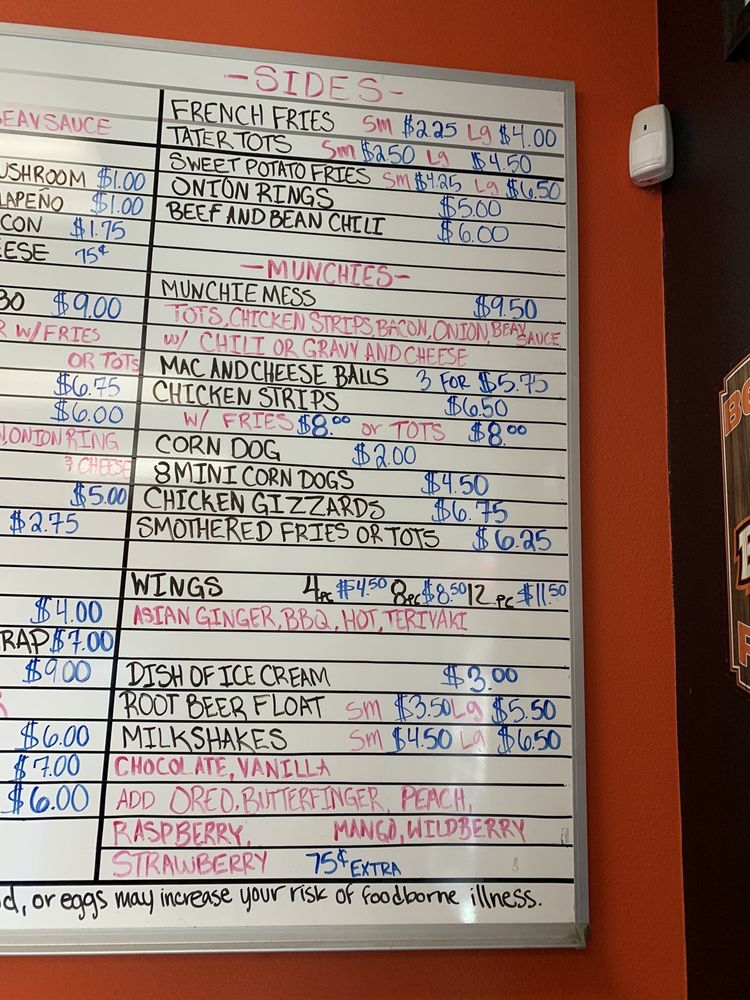 EAV SAUCE
USHROOM $1.00
LAPEÑO $1.00
CON $1.75
EESE 75¢
BO $9.00
R W/FRIES
OR TOTS
$6.75
$6.00
,ONION RING
& CHEESE
$5.00
$2.75
$4.00
RAP $7.00
$9.00
$6.00
$7.00
$6.00
-SIDES-
FRENCH FRIES Sm $2.25 Lg $4.00
TATER TOTS Sm $2.50 Lg $4.50
SWEET POTATO FRIES Sm $4.25 Lg $6.50
ONION RINGS $5.00
BEEF AND BEAN CHILI $6.00
-MUNCHIES-
MUNCHIE MESS $9.50
TOTS, CHICKEN STRIPS, BACON, ONION, BEAV SAUCE
W/ CHILI OR GRAVY AND CHEESE
MAC AND CHEESE BALLS 3 FOR $5.75
CHICKEN STRIPS $6.50
W/ FRIES $8.00 or TOTS $8.00
CORN DOG $2.00
8 MINI CORN DOGS $4.50
CHICKEN GIZZARDS $6.75
SMOTHERED FRIES OR TOTS $6.25
WINGS 4pc $4.50 8pc $8.50 12 pc $11.50
ASIAN GINGER, BBQ, HOT, TERIYAKI
DISH OF ICE CREAM $3.00
ROOT BEER FLOAT Sm $3.50 Lg $5.50
MILKSHAKES Sm $4.50 Lg $6.50
CHOCOLATE, VANILLA
ADD OREO, BUTTERFINGER, PEACH,
RASPBERRY, MANGO, WILDBERRY
STRAWBERRY 75¢ EXTRA
d, or eggs may increase your risk of foodborne illness.